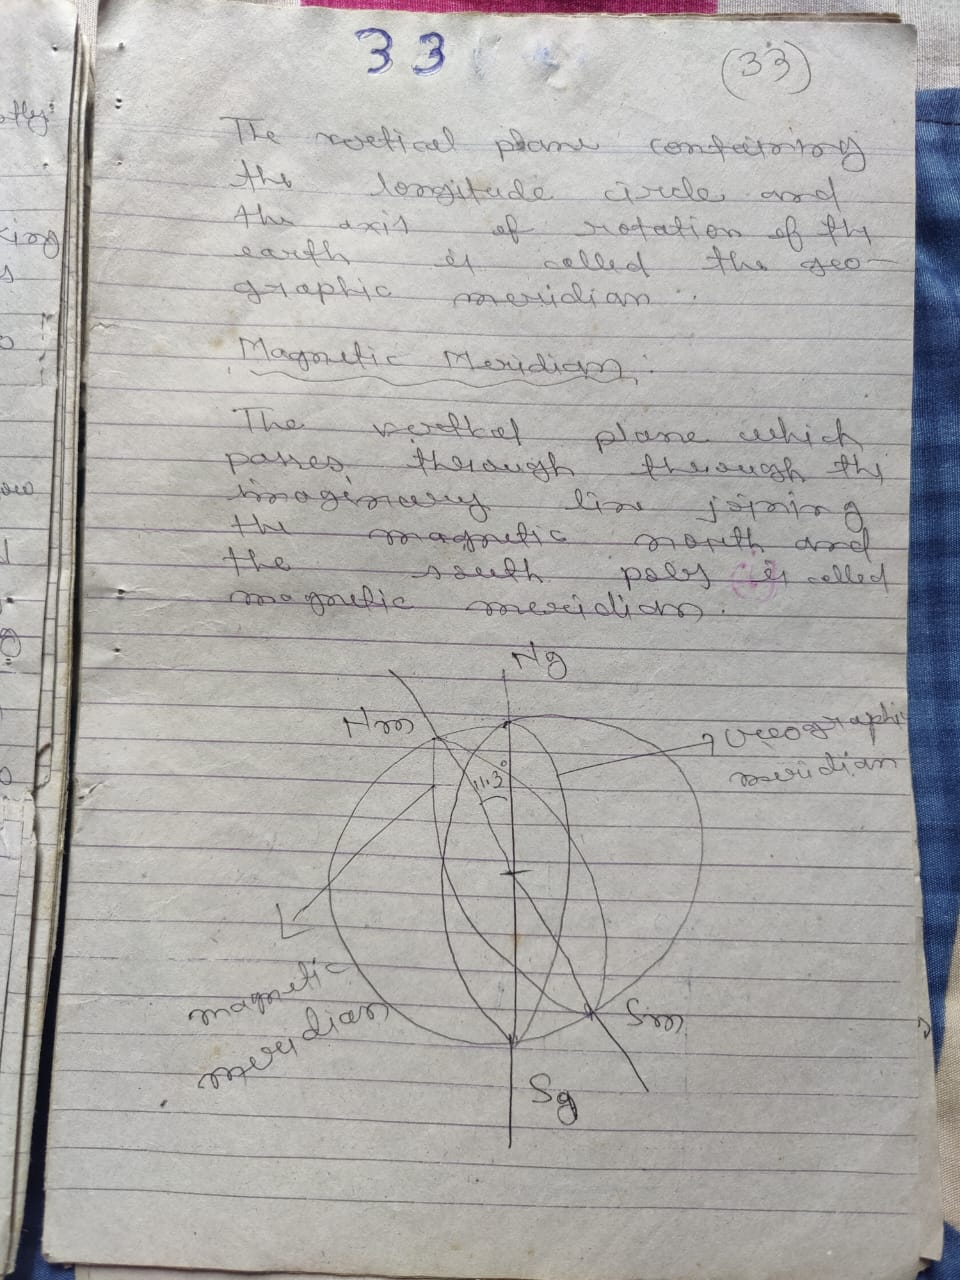 33
(33)
The vertical plane containing
the longitude circle and
the axis of rotation of the
earth is called the geo-
graphic meridian.
Magnetic Meridian.
The vertical plane which
passes through through the
imaginary line joining
the magnetic north and
the south poles is called
magnetic meridian.
Ng
Nm
Geographic
meridian
11.3°
magnetic
meridian
Sm
Sg